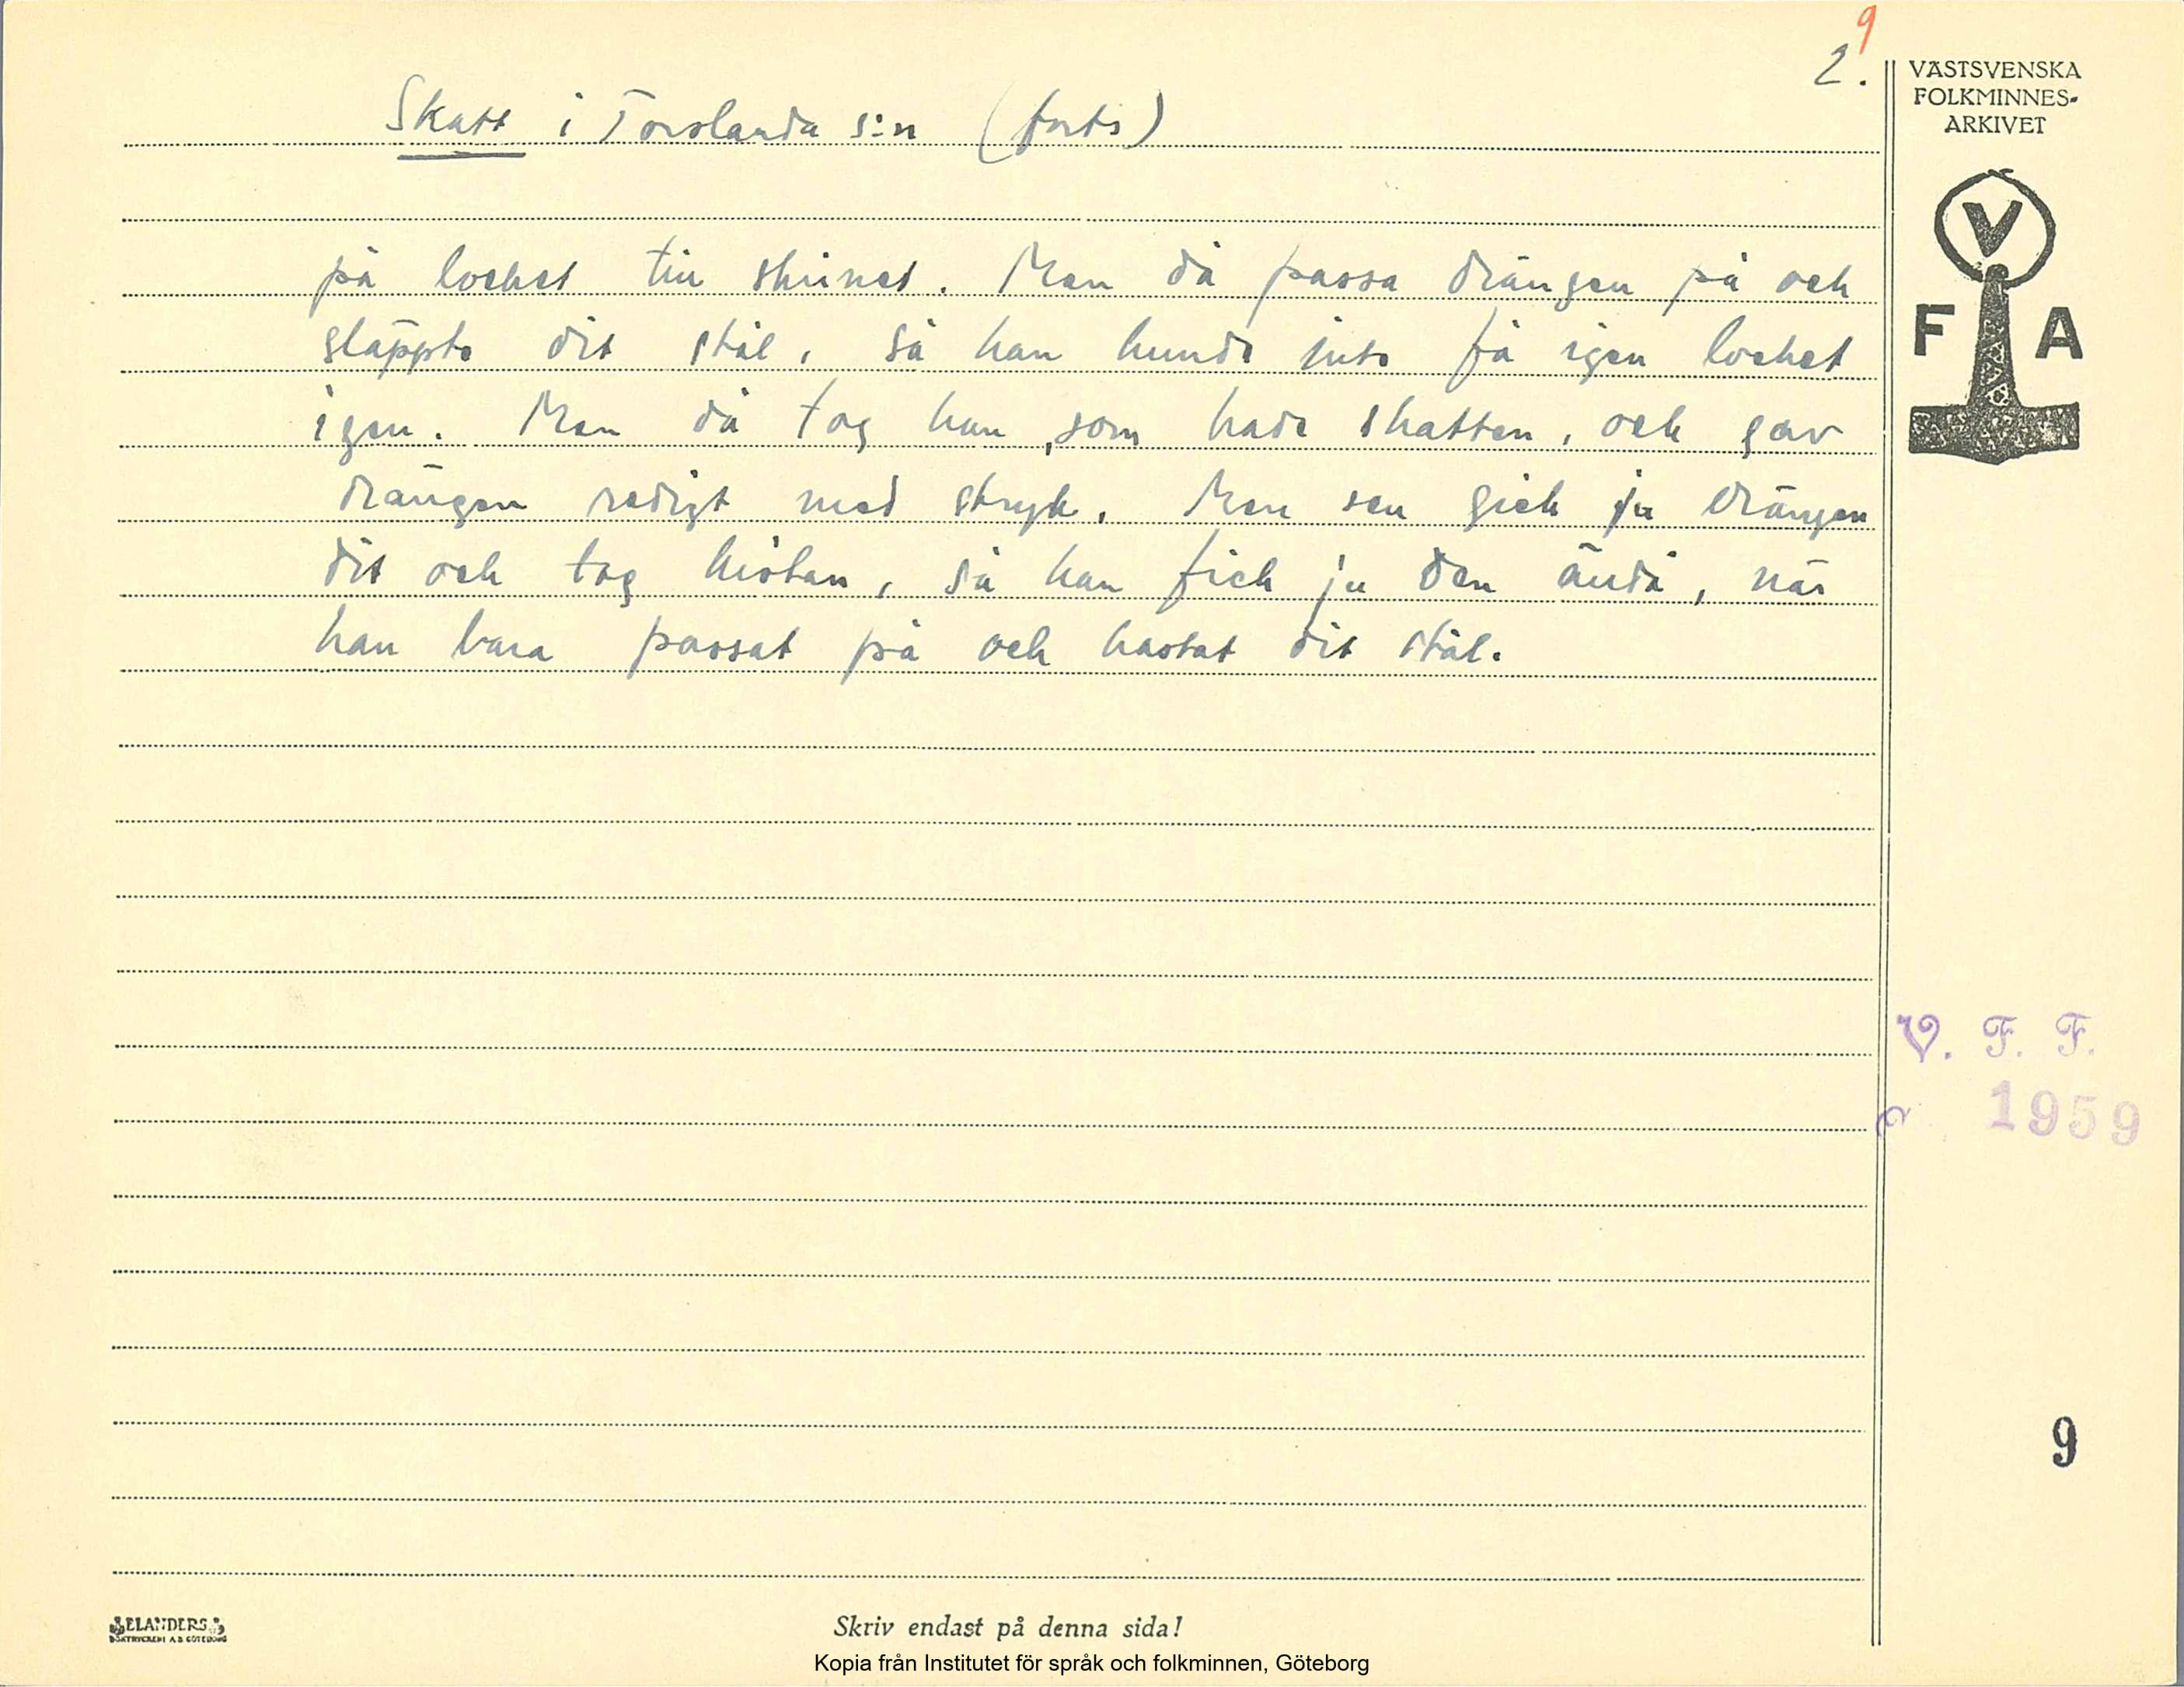 9
2.
VÄSTSVENSKA
FOLKMINNES-
ARKIVET
V
F A
Skatt i Torslanda s:n (forts)
på locket till skrinet. Men då passa drängen på och
släppte dit stål, så han kunde inte få igen locket
igen. Men då tog han, som hade skatten, och gav
drängen redigt med stryk. Men sen gick ju drängen
dit och tog kistan, så han fick ju den ändå, när
han bara passat på och kastat dit stål.
V. F. F.
1959
9
ELANDERS
BOKTRYCKERI A.B. GÖTEBORG
Skriv endast på denna sida!
Kopia från Institutet för språk och folkminnen, Göteborg